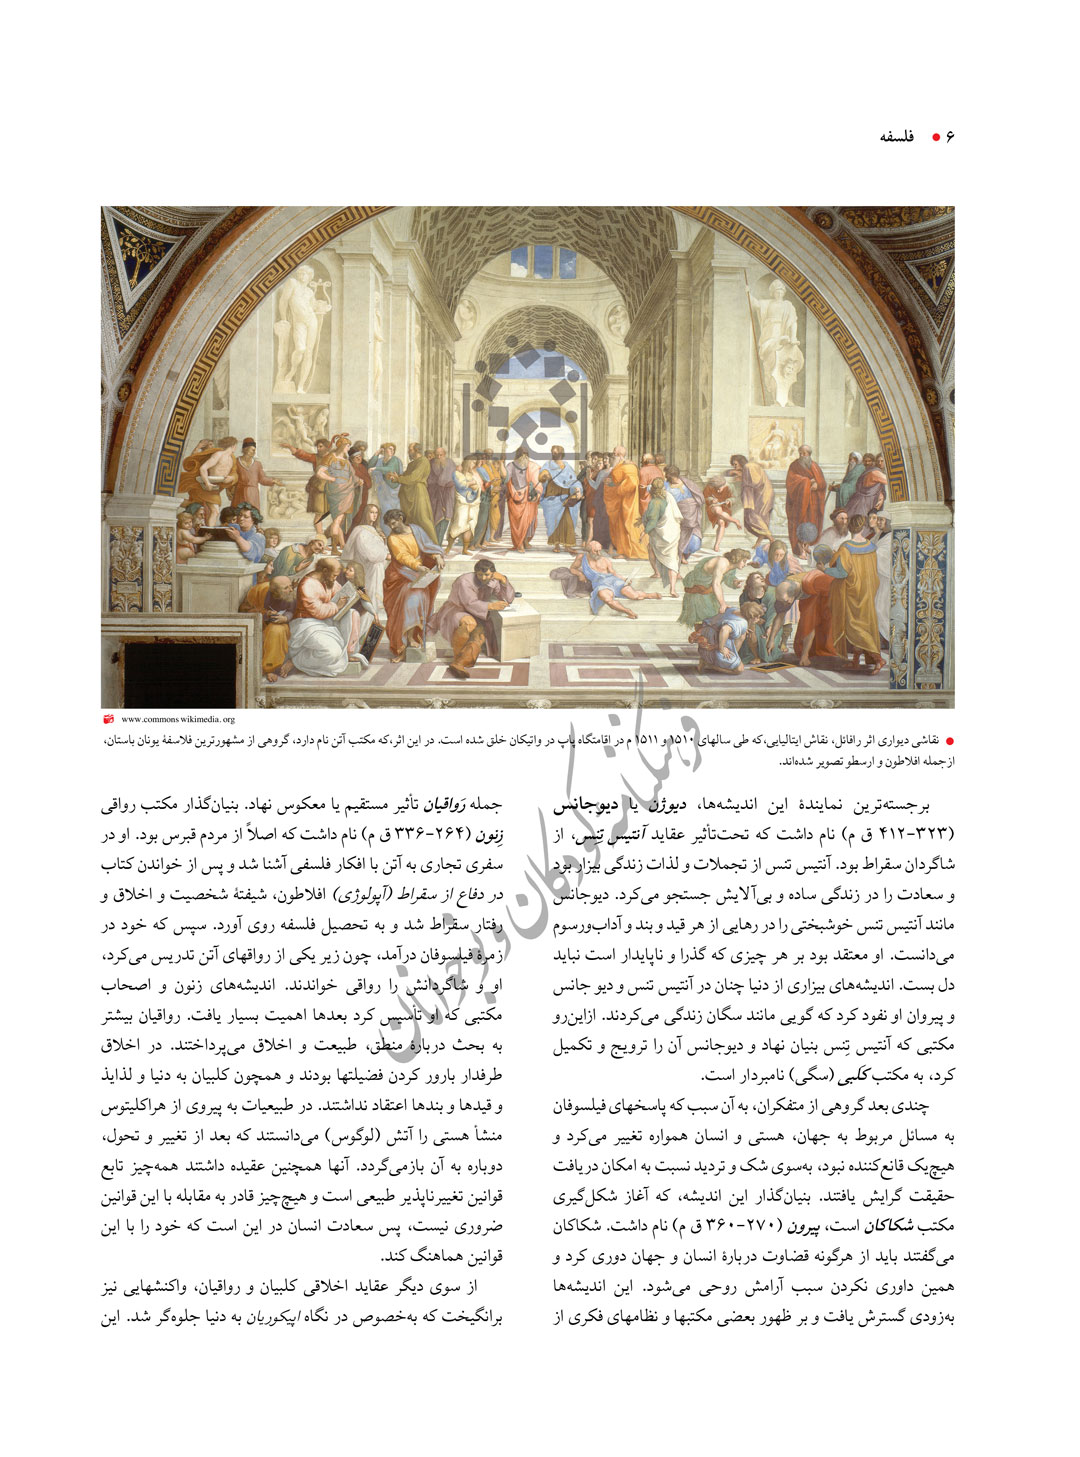 ۶ • فلسفه
www.commons wikimedia. org
• نقاشی دیواری اثر رافائل، نقاش ایتالیایی،که طی سالهای ۱۵۱۰ و ۱۵۱۱ م در اقامتگاه پاپ در واتیکان خلق شده است. در این اثر،که مکتب آتن نام دارد، گروهی از مشهورترین فلاسفهٔ یونان باستان،
ازجمله افلاطون و ارسطو تصویر شده‌اند.
برجسته‌ترین نمایندهٔ این اندیشه‌ها، دیوژن یا دیوجانس
(۳۲۳-۴۱۲ ق م) نام داشت که تحت‌تأثیر عقاید آنتیس تِنس، از
شاگردان سقراط بود. آنتیس تنس از تجملات و لذات زندگی بیزار بود
و سعادت را در زندگی ساده و بی‌آلایش جستجو می‌کرد. دیوجانس
مانند آنتیس تنس خوشبختی را در رهایی از هر قید و بند و آداب‌ورسوم
می‌دانست. او معتقد بود بر هر چیزی که گذرا و ناپایدار است نباید
دل بست. اندیشه‌های بیزاری از دنیا چنان در آنتیس تنس و دیو جانس
و پیروان او نفود کرد که گویی مانند سگان زندگی می‌کردند. ازاین‌رو
مکتبی که آنتیس تِنس بنیان نهاد و دیوجانس آن را ترویج و تکمیل
کرد، به مکتب کَلبی (سگی) نامبردار است.
چندی بعد گروهی از متفکران، به آن سبب که پاسخهای فیلسوفان
به مسائل مربوط به جهان، هستی و انسان همواره تغییر می‌کرد و
هیچ‌یک قانع‌کننده نبود، به‌سوی شک و تردید نسبت به امکان دریافت
حقیقت گرایش یافتند. بنیان‌گذار این اندیشه، که آغاز شکل‌گیری
مکتب شکاکان است، پیرون (۲۷۰-۳۶۰ ق م) نام داشت. شکاکان
می‌گفتند باید از هرگونه قضاوت دربارهٔ انسان و جهان دوری کرد و
همین داوری نکردن سبب آرامش روحی می‌شود. این اندیشه‌ها
به‌زودی گسترش یافت و بر ظهور بعضی مکتبها و نظامهای فکری از
جمله رَواقیان تأثیر مستقیم یا معکوس نهاد. بنیان‌گذار مکتب رواقی
زِنون (۲۶۴-۳۳۶ ق م) نام داشت که اصلاً از مردم قبرس بود. او در
سفری تجاری به آتن با افکار فلسفی آشنا شد و پس از خواندن کتاب
در دفاع از سقراط (آپولوژی) افلاطون، شیفتهٔ شخصیت و اخلاق و
رفتار سقراط شد و به تحصیل فلسفه روی آورد. سپس که خود در
زمرهٔ فیلسوفان درآمد، چون زیر یکی از رواقهای آتن تدریس می‌کرد،
او و شاگردانش را رواقی خواندند. اندیشه‌های زنون و اصحاب
مکتبی که او تأسیس کرد بعدها اهمیت بسیار یافت. رواقیان بیشتر
به بحث دربارهٔ منطق، طبیعت و اخلاق می‌پرداختند. در اخلاق
طرفدار بارور کردن فضیلتها بودند و همچون کلبیان به دنیا و لذایذ
و قیدها و بندها اعتقاد نداشتند. در طبیعیات به پیروی از هراکلیتوس
منشأ هستی را آتش (لوگوس) می‌دانستند که بعد از تغییر و تحول،
دوباره به آن بازمی‌گردد. آنها همچنین عقیده داشتند همه‌چیز تابع
قوانین تغییرناپذیر طبیعی است و هیچ‌چیز قادر به مقابله با این قوانین
ضروری نیست، پس سعادت انسان در این است که خود را با این
قوانین هماهنگ کند.
از سوی دیگر عقاید اخلاقی کلبیان و رواقیان، واکنشهایی نیز
برانگیخت که به‌خصوص در نگاه اپیکوریان به دنیا جلوه‌گر شد. این
فرهنگنامه کودکان و نوجوانان